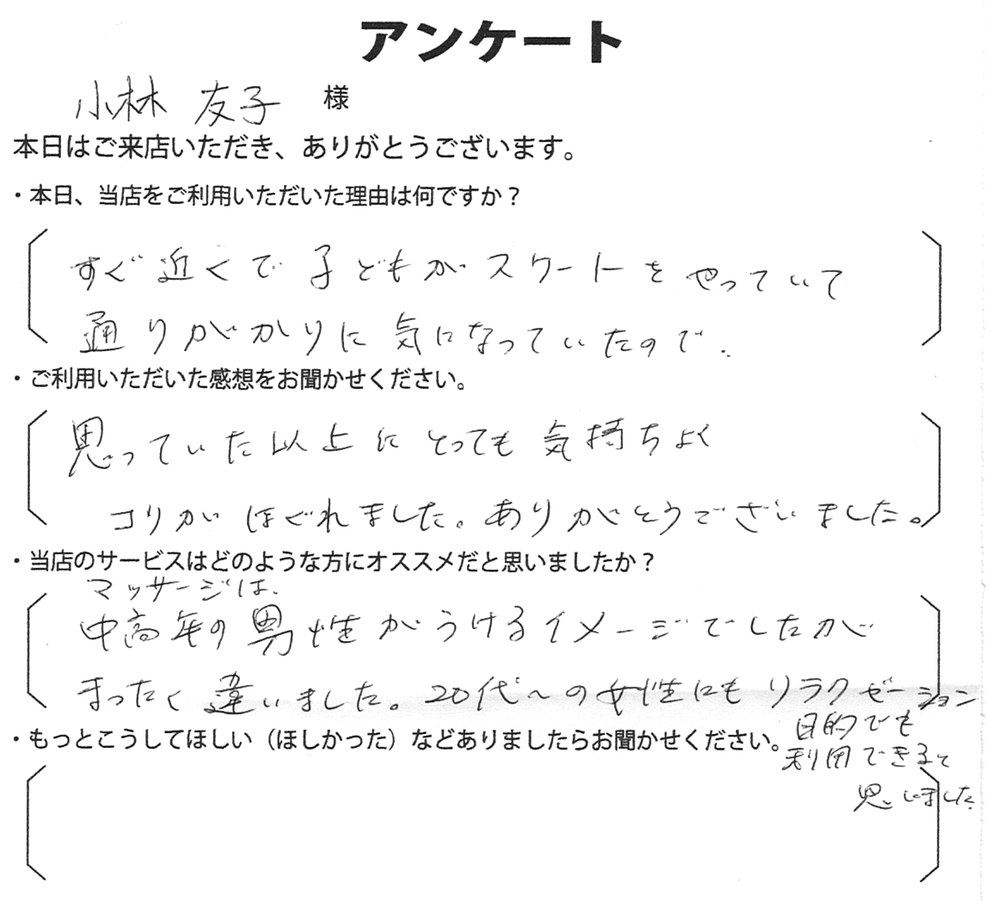 アンケート
小林 友子 様
本日はご来店いただき、ありがとうございます。
・本日、当店をご利用いただいた理由は何ですか？
すぐ近くで子どもがスケートをやっていて
通りがかりに気になっていたので.
・ご利用いただいた感想をお聞かせください。
思っていた以上にとっても気持ちよく
コリがほぐれました。ありがとうございました。
・当店のサービスはどのような方にオススメだと思いましたか？
マッサージは、
中高年の男性がうけるイメージでしたが
まったく違いました。20代〜の女性にもリラクゼーション
目的でも
利用できると
思いました
・もっとこうしてほしい（ほしかった）などありましたらお聞かせください。